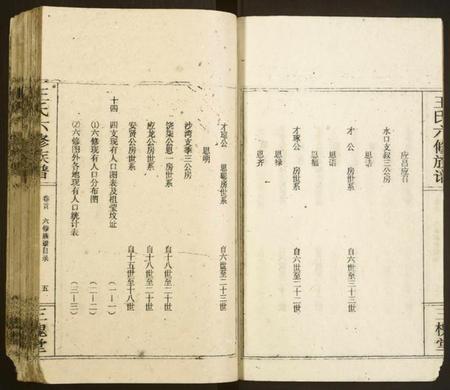 王氏六修族谱
三槐堂
应昌应召
水口支叔三公房
思诰
才 公 房世系 自六世至三十三世
思语
思聪
才琢公 房世系 自六世至二十二世
思禄
思齐
才琼公 思聪房世系 自六世至二十三世
思明
沙湾支季三公房
饶柒公思一房世系 自十八世至二十世
应龙公房世系 自十八世至二十世
安贤公房世系 自十五世至十八世
十四 四支现有人口图表及祖茔坟址 (一—一)
(1)六修现有人口分布图 (二—一)
(2)六修图外各地现有人口统计表 (二—三)
王氏六修族谱
卷首 六修族谱目录 五
三槐堂